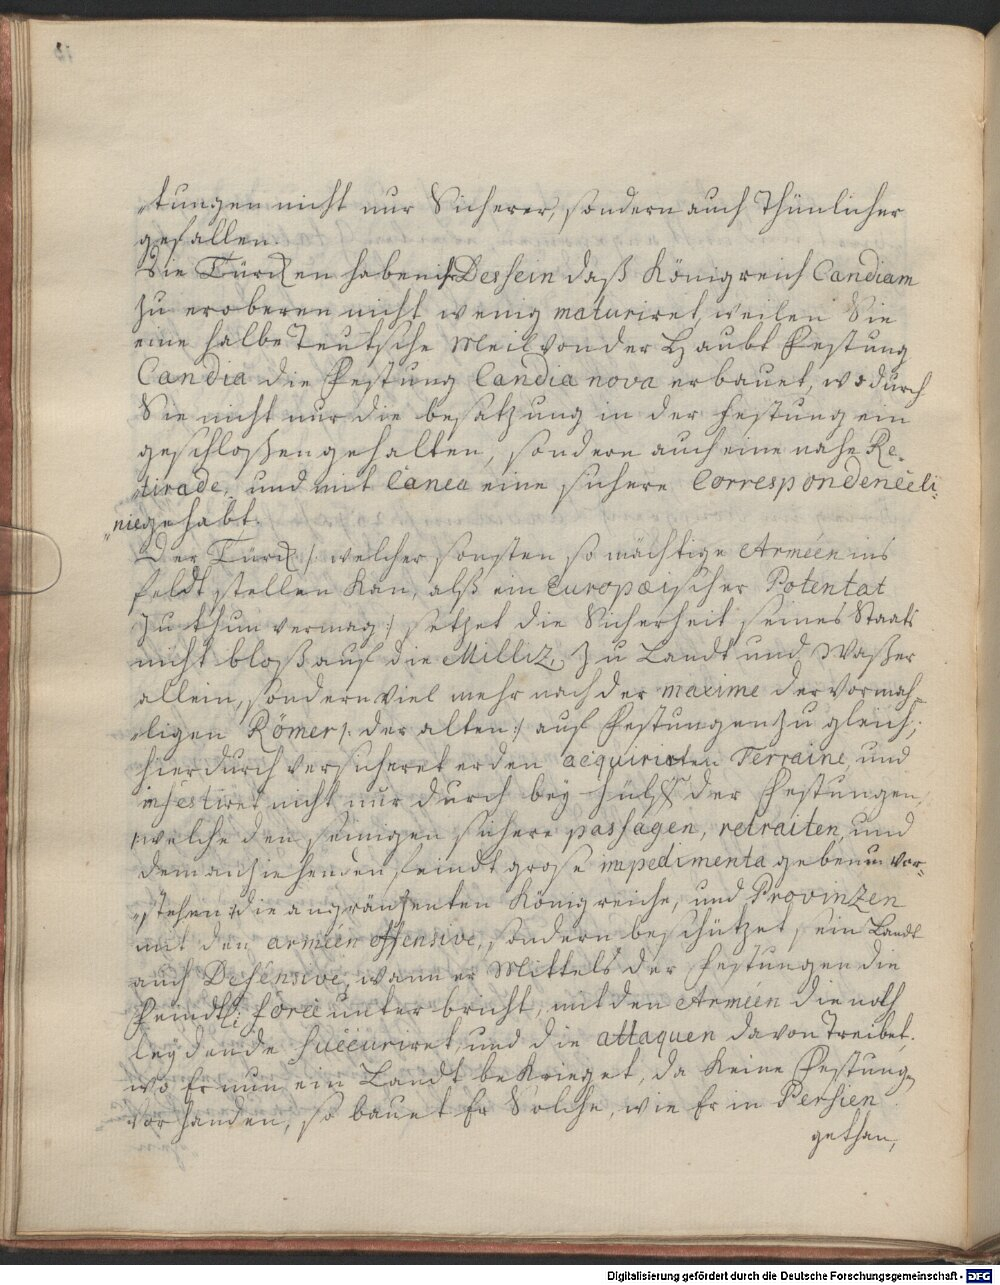 „tungen nicht nur Sicherer, sondern auch Thünlicher
gefallen.
Die Türcken haben ihr Dessein daß Königreich Candiam
zu eroberen nicht wenig maturiret, weilen Sie
eine halbe Teutsche Meil von der Haubt Festung
Candia die Festung Candia nova erbauet, wodurch
Sie nicht nur die besatzung in der Festung ein
geschloßen gehalten, sondern auch eine nahe Re-
„tirade, und mit Canea eine sichere Correspondencéli-
„nie gehabt.
Der Türck /: welcher sonsten so mächtige Arméen ins
feldt stellen Kan, alß ein Europæischer Potentat
zu thun vermag :/ setzet die Sicherheit seines Staats
nicht bloß auf die Milliz, zu Landt und Waßer
allein, sondern viel mehr nach der maxime der vormah-
„ligen Römer /: der alten :/ auf Festungen zu gleich;
hierdurch versicheret er den acquirirten Terraine, und
infestiret nicht nur durch bey hülff der Festungen,
/: welche den seinigen sichere passagen, retraiten, und
dem anziehenden feindt grose impedimenta geben
„stehen :/ die angräntzenten Königreiche, und Provinzen
mit den arméen offensive, sondern beschützet sein Landt
auch Defensive, wann er Mittels der Festungen die
Feindtl: force unterbricht, mit den Arméen die noth
leydende succuriret, und die attaquen davon Treibet,
wo Er nun ein Landt bekrieget, da Keine Festungen
vorhanden, so bauet Er Solche, wie Er in Persien
gethan,
Digitalisierung gefördert durch die Deutsche Forschungsgemeinschaft - DFG